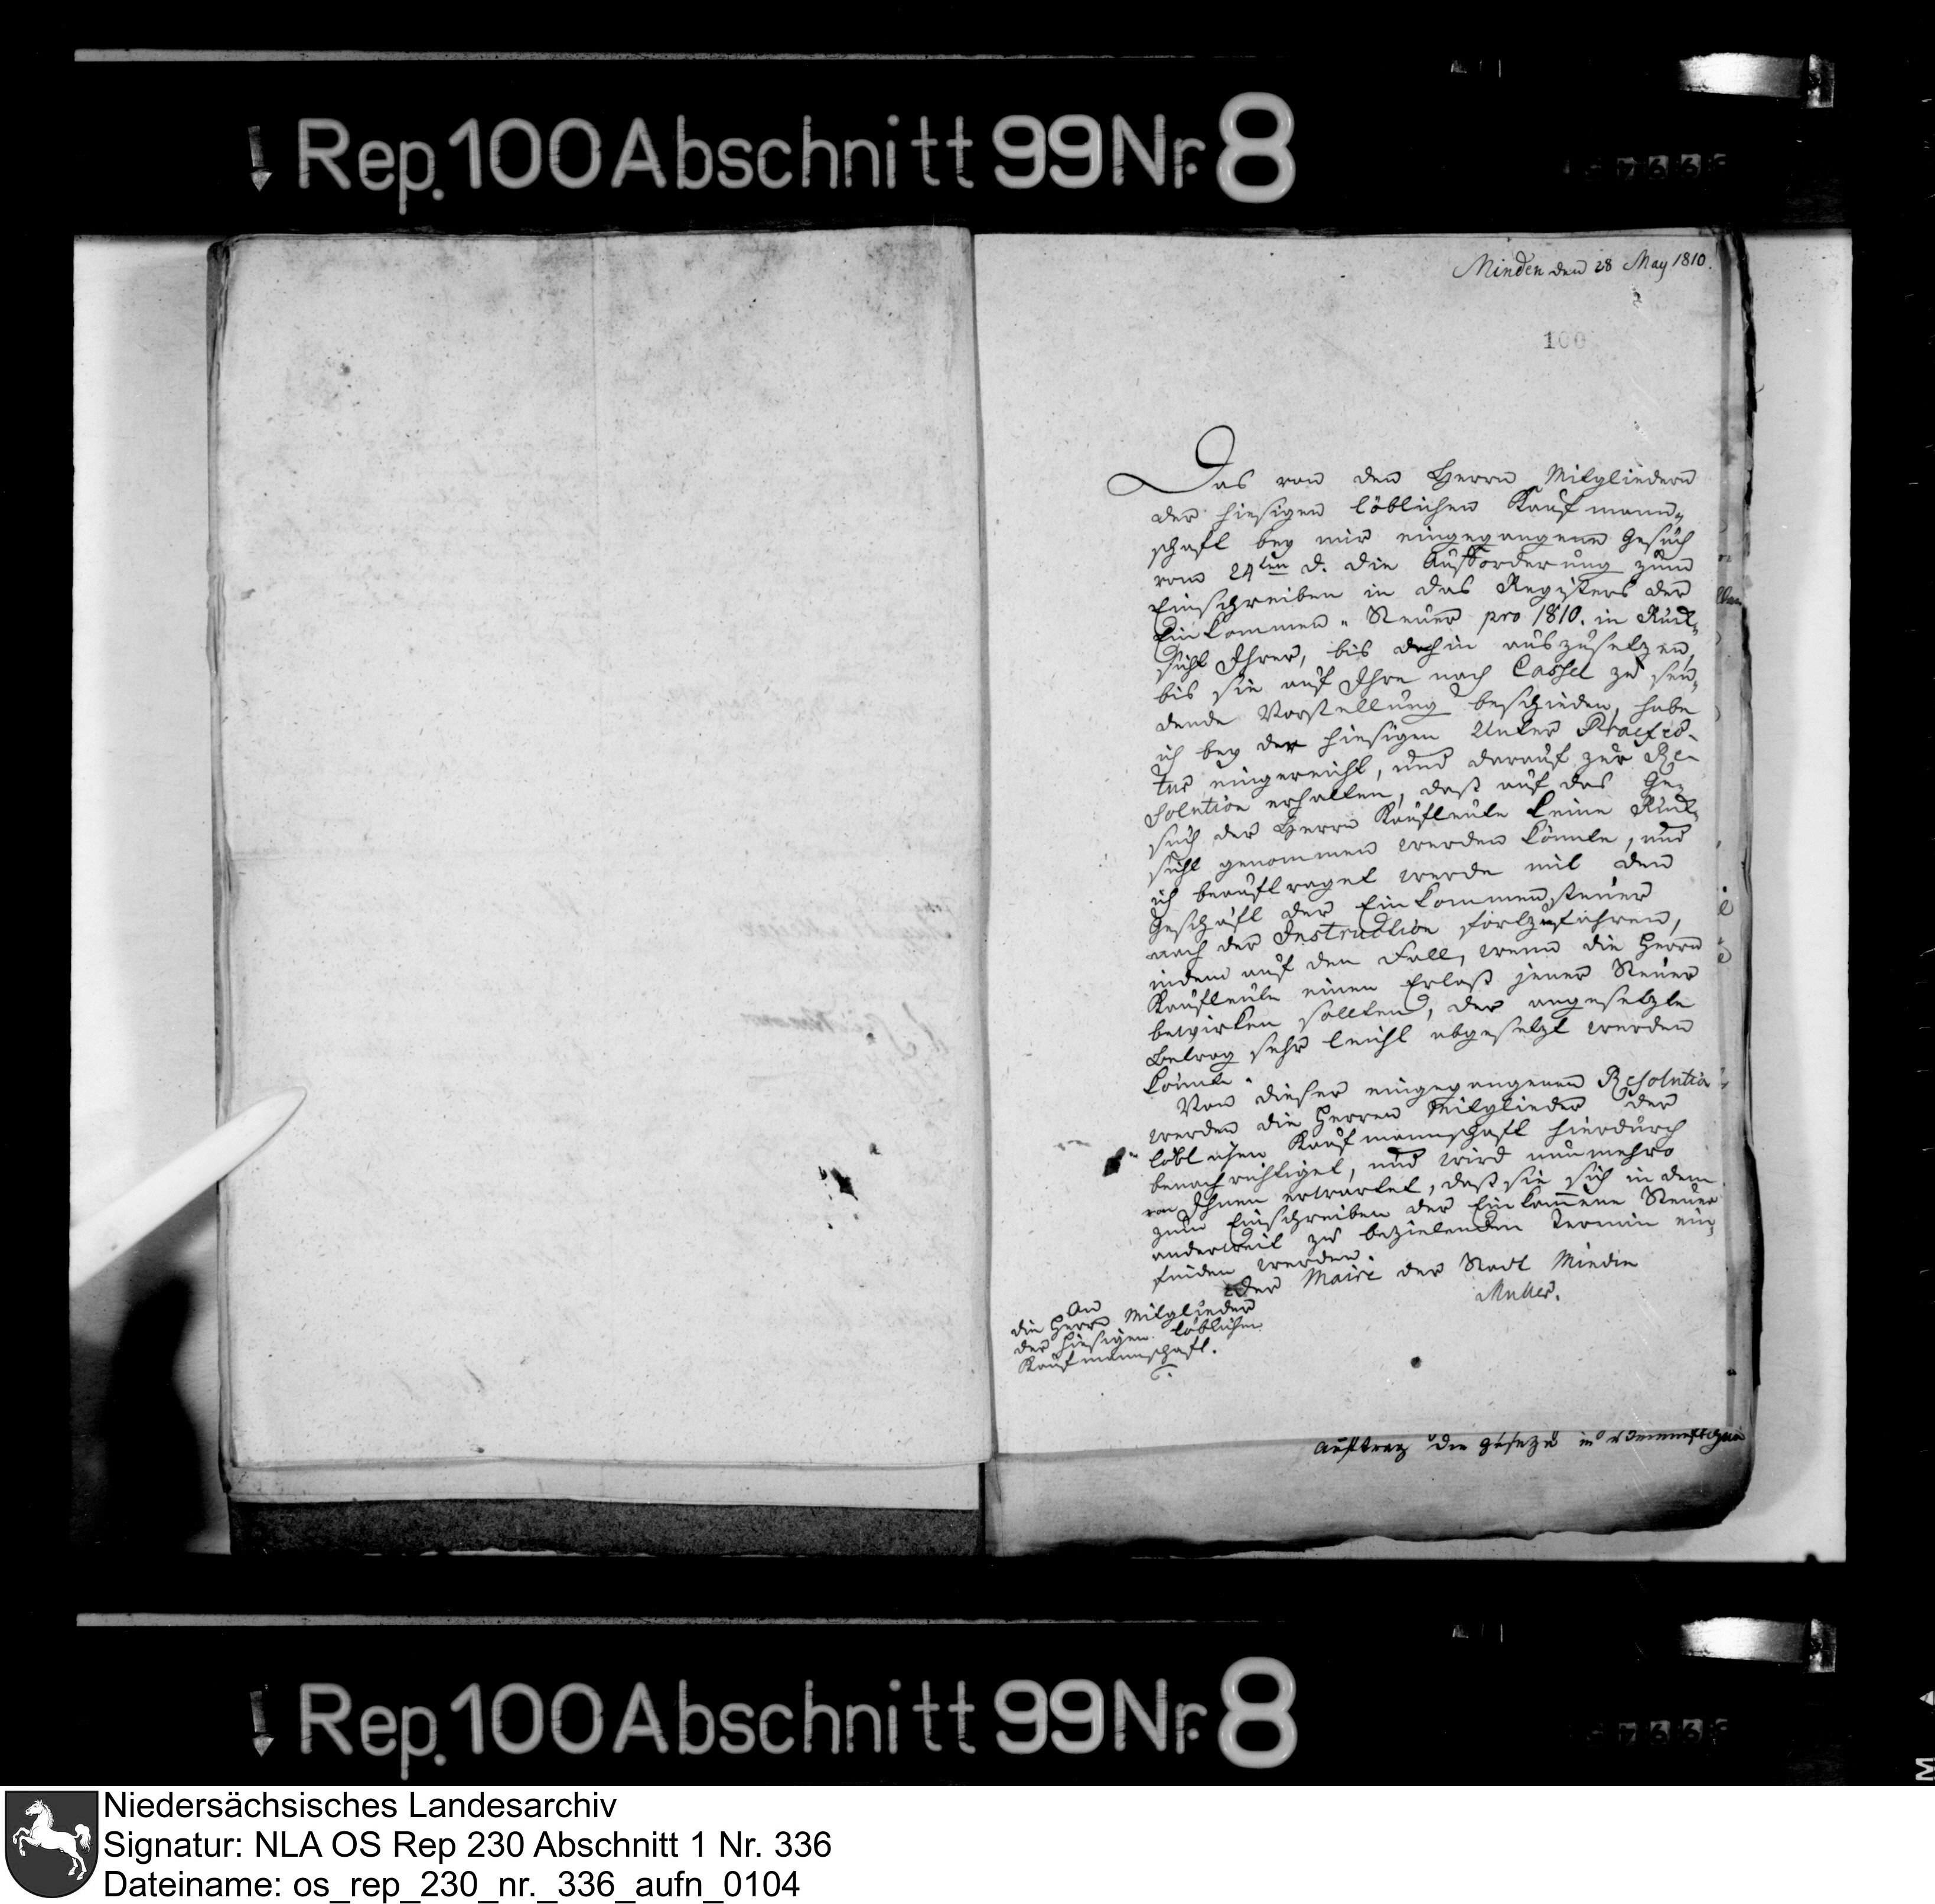 Rep. 100 Abschnitt 99 Nr. 8
Minden den 28 May 1810.
100
Das von den Herrn Mitgliedern
der hiesigen löblichen Kaufmann„
schaft bey mir eingegangene Gesuch
vom 24ten d. die Aufforderung zum
Einschreiben in das Registers der
Einkommen - Steuer pro 1810. in Rück„
sicht Ihrer, bis dahin auszusetzen,
bis sie auf Ihre nach Cassel zu sen„
dende Vorstellung beschieden, habe
ich bey der hiesigen Unter Praefec-
tur eingereicht, und darauf zur Re-
solution erhalten, daß auf das Ge-
such der Herrn Kaufleute keine Rück„
sicht genommen werden könnte, und
ich beauftraget werde mit dem
Geschäft der Einkommensteuer
nach der Instruction fortzufahren,
indem auf den Fall, wenn die Herrn
Kaufleute einen Erlaß jener Steuer
bewirken sollten, der angesetzte
Betrag sehr leicht abgesetzt werden
könnte.
Von dieser eingegangenen Resolution
werden die Herren Mitglieder der
löblichen Kaufmannschaft hierdurch
benachrichtiget, und wird nunmehro
von Ihnen erwartet, daß sie sich in dem
zum Einschreiben der Einkom̅ene Steuer
anderweit zu bezielenden Termin ein„
finden werden.
Der Maire der Stadt Minden
Muller.
An
die Herrn Mitglieder
der hiesigen löblichen
Kaufmannschaft.
Auftrag die gesetze in
Rep. 100 Abschnitt 99 Nr. 8
Niedersächsisches Landesarchiv
Signatur: NLA OS Rep 230 Abschnitt 1 Nr. 336
Dateiname: os_rep_230_nr._336_aufn_0104